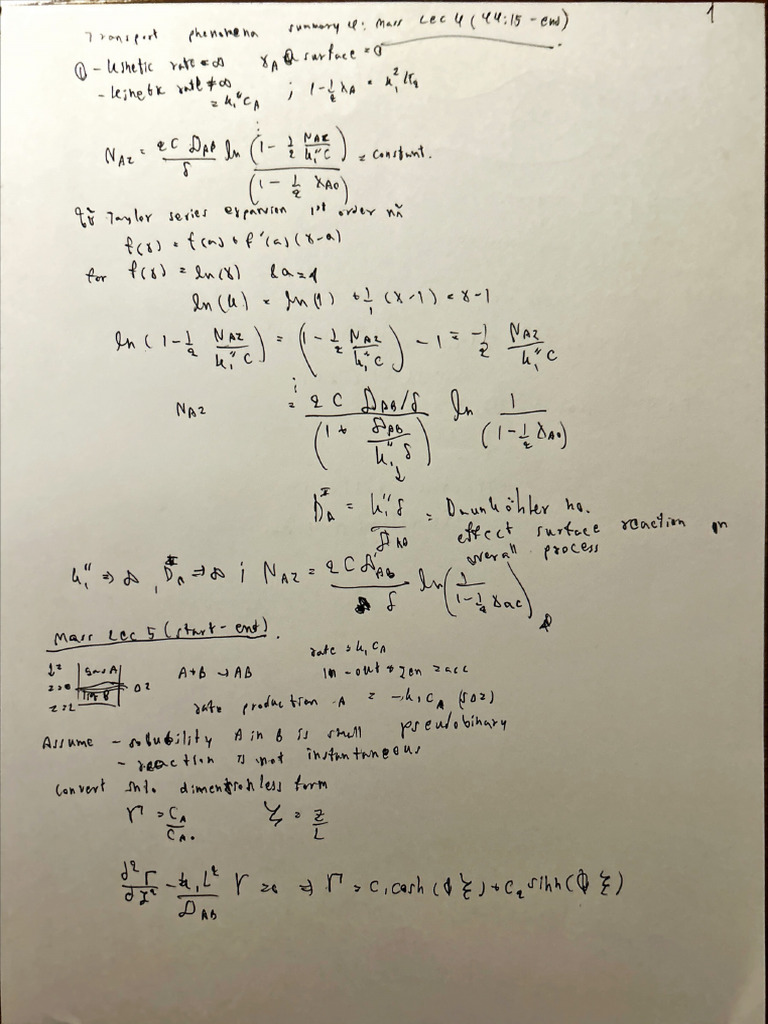 1
Transport phenomena summary 4: Mass Lec 4 (44:15 - end)
① - kinetic rate = ∞ x_A @ surface = 0
- kinetic rate ≠ ∞
= k₁" C_A ; 1 - ½ x_A =
N_AZ = 2 C D_AB / δ ln (1 - ½ N_AZ / k₁" C) / (1 - ½ x_A0) = constant.
Taylor series expansion 1st order
f(x) = f(a) + f'(a) (x-a)
for f(x) = ln(x) & a = 1
ln(x) = ln(1) + 1/1 (x-1) = x-1
ln (1 - ½ N_AZ / k₁" C) = (1 - ½ N_AZ / k₁" C) - 1 = -½ N_AZ / k₁" C
N_AZ = 2 C D_AB/δ / (1 + D_AB / k₁" δ) ln 1 / (1 - ½ x_A0)
D_a^II = k₁" δ / D_AB = Daunköhler no.
effect surface reaction on
overall process
k₁" ⇒ ∞, D_a^II ⇒ ∞ ; N_AZ = 2 C D_AB / δ ln (1 / 1 - ½ x_A0)
Mass Lec 5 (start - end).
rate = k₁ C_A
gas A A + B → AB in - out + gen = acc
z=0 liq B Δz
z=L rate production A = -k₁ C_A (SΔz)
Assume - solubility A in B is small pseudobinary
- reaction is not instantaneous
Convert into dimensionless form
Γ = C_A / C_A0 ξ = z / L
d²Γ / dξ² - k₁ L² / D_AB Γ = 0 ⇒ Γ = C₁ cosh (ϕ ξ) + C₂ sinh (ϕ ξ)